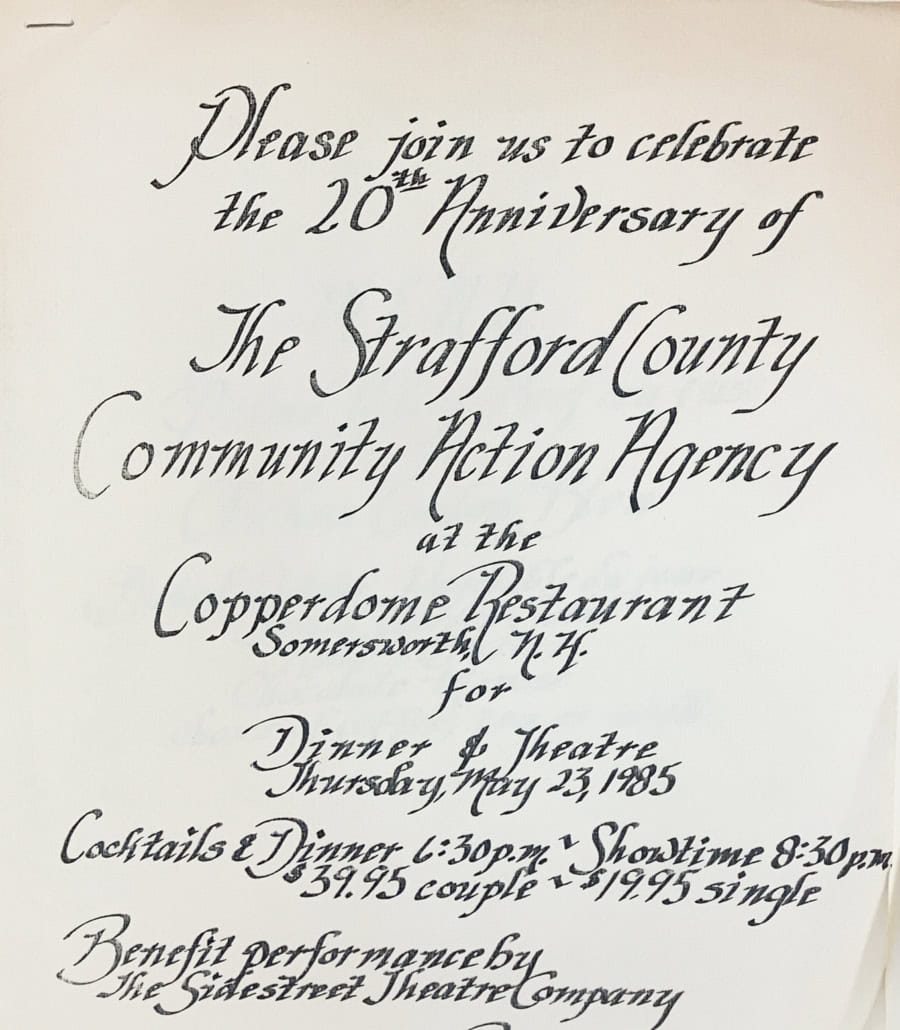 Please join us to celebrate
the 20th Anniversary of
The Strafford County
Community Action Agency
at the
Copperdome Restaurant
Somersworth, N.H.
for
Dinner & Theatre
Thursday, May 23, 1985
Cocktails & Dinner 6:30 p.m. ~ Showtime 8:30 p.m.
$39.95 couple ~ $19.95 single
Benefit performance by
The Sidestreet Theatre Company